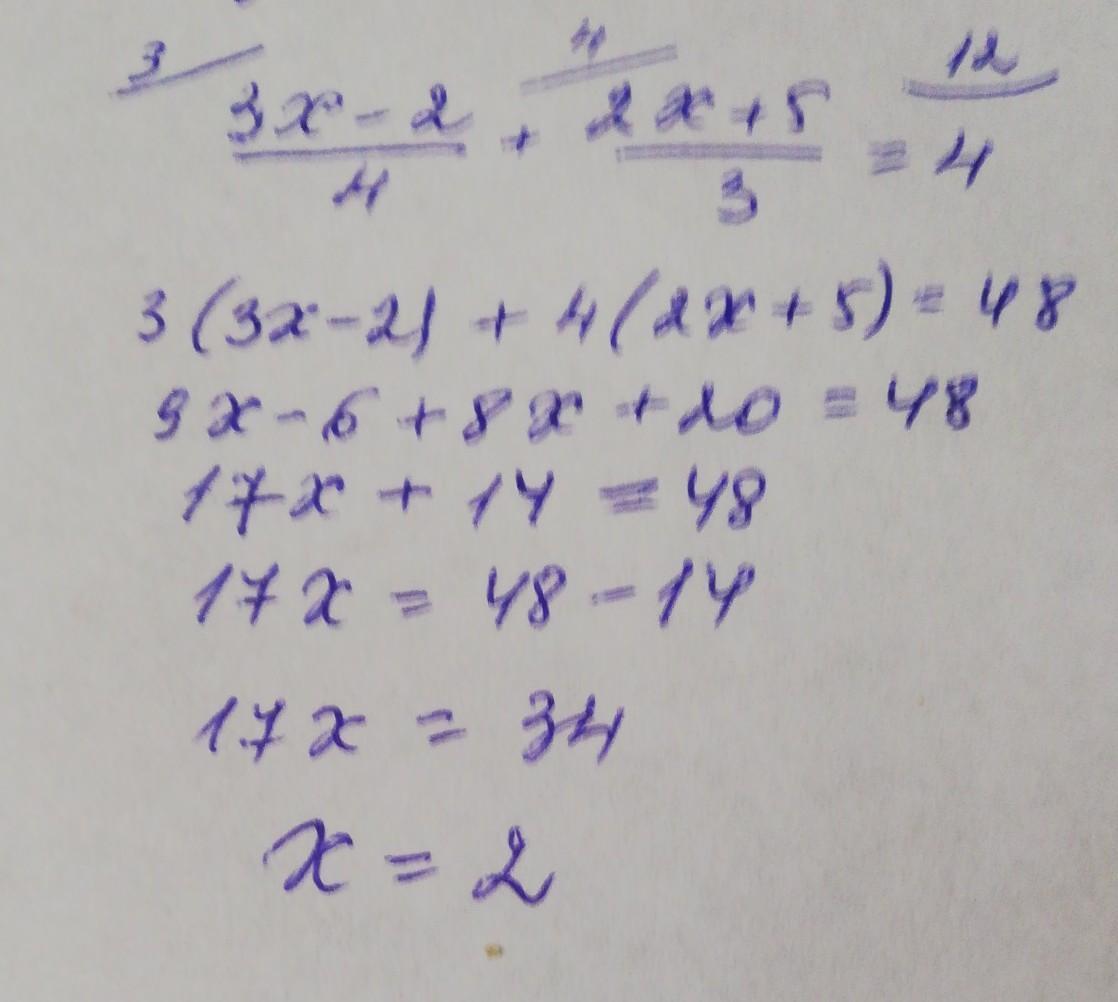 3 4 12
3x - 2 + 2x + 5 = 4
4 3
3(3x - 2) + 4(2x + 5) = 48
9x - 6 + 8x + 20 = 48
17x + 14 = 48
17x = 48 - 14
17x = 34
x = 2